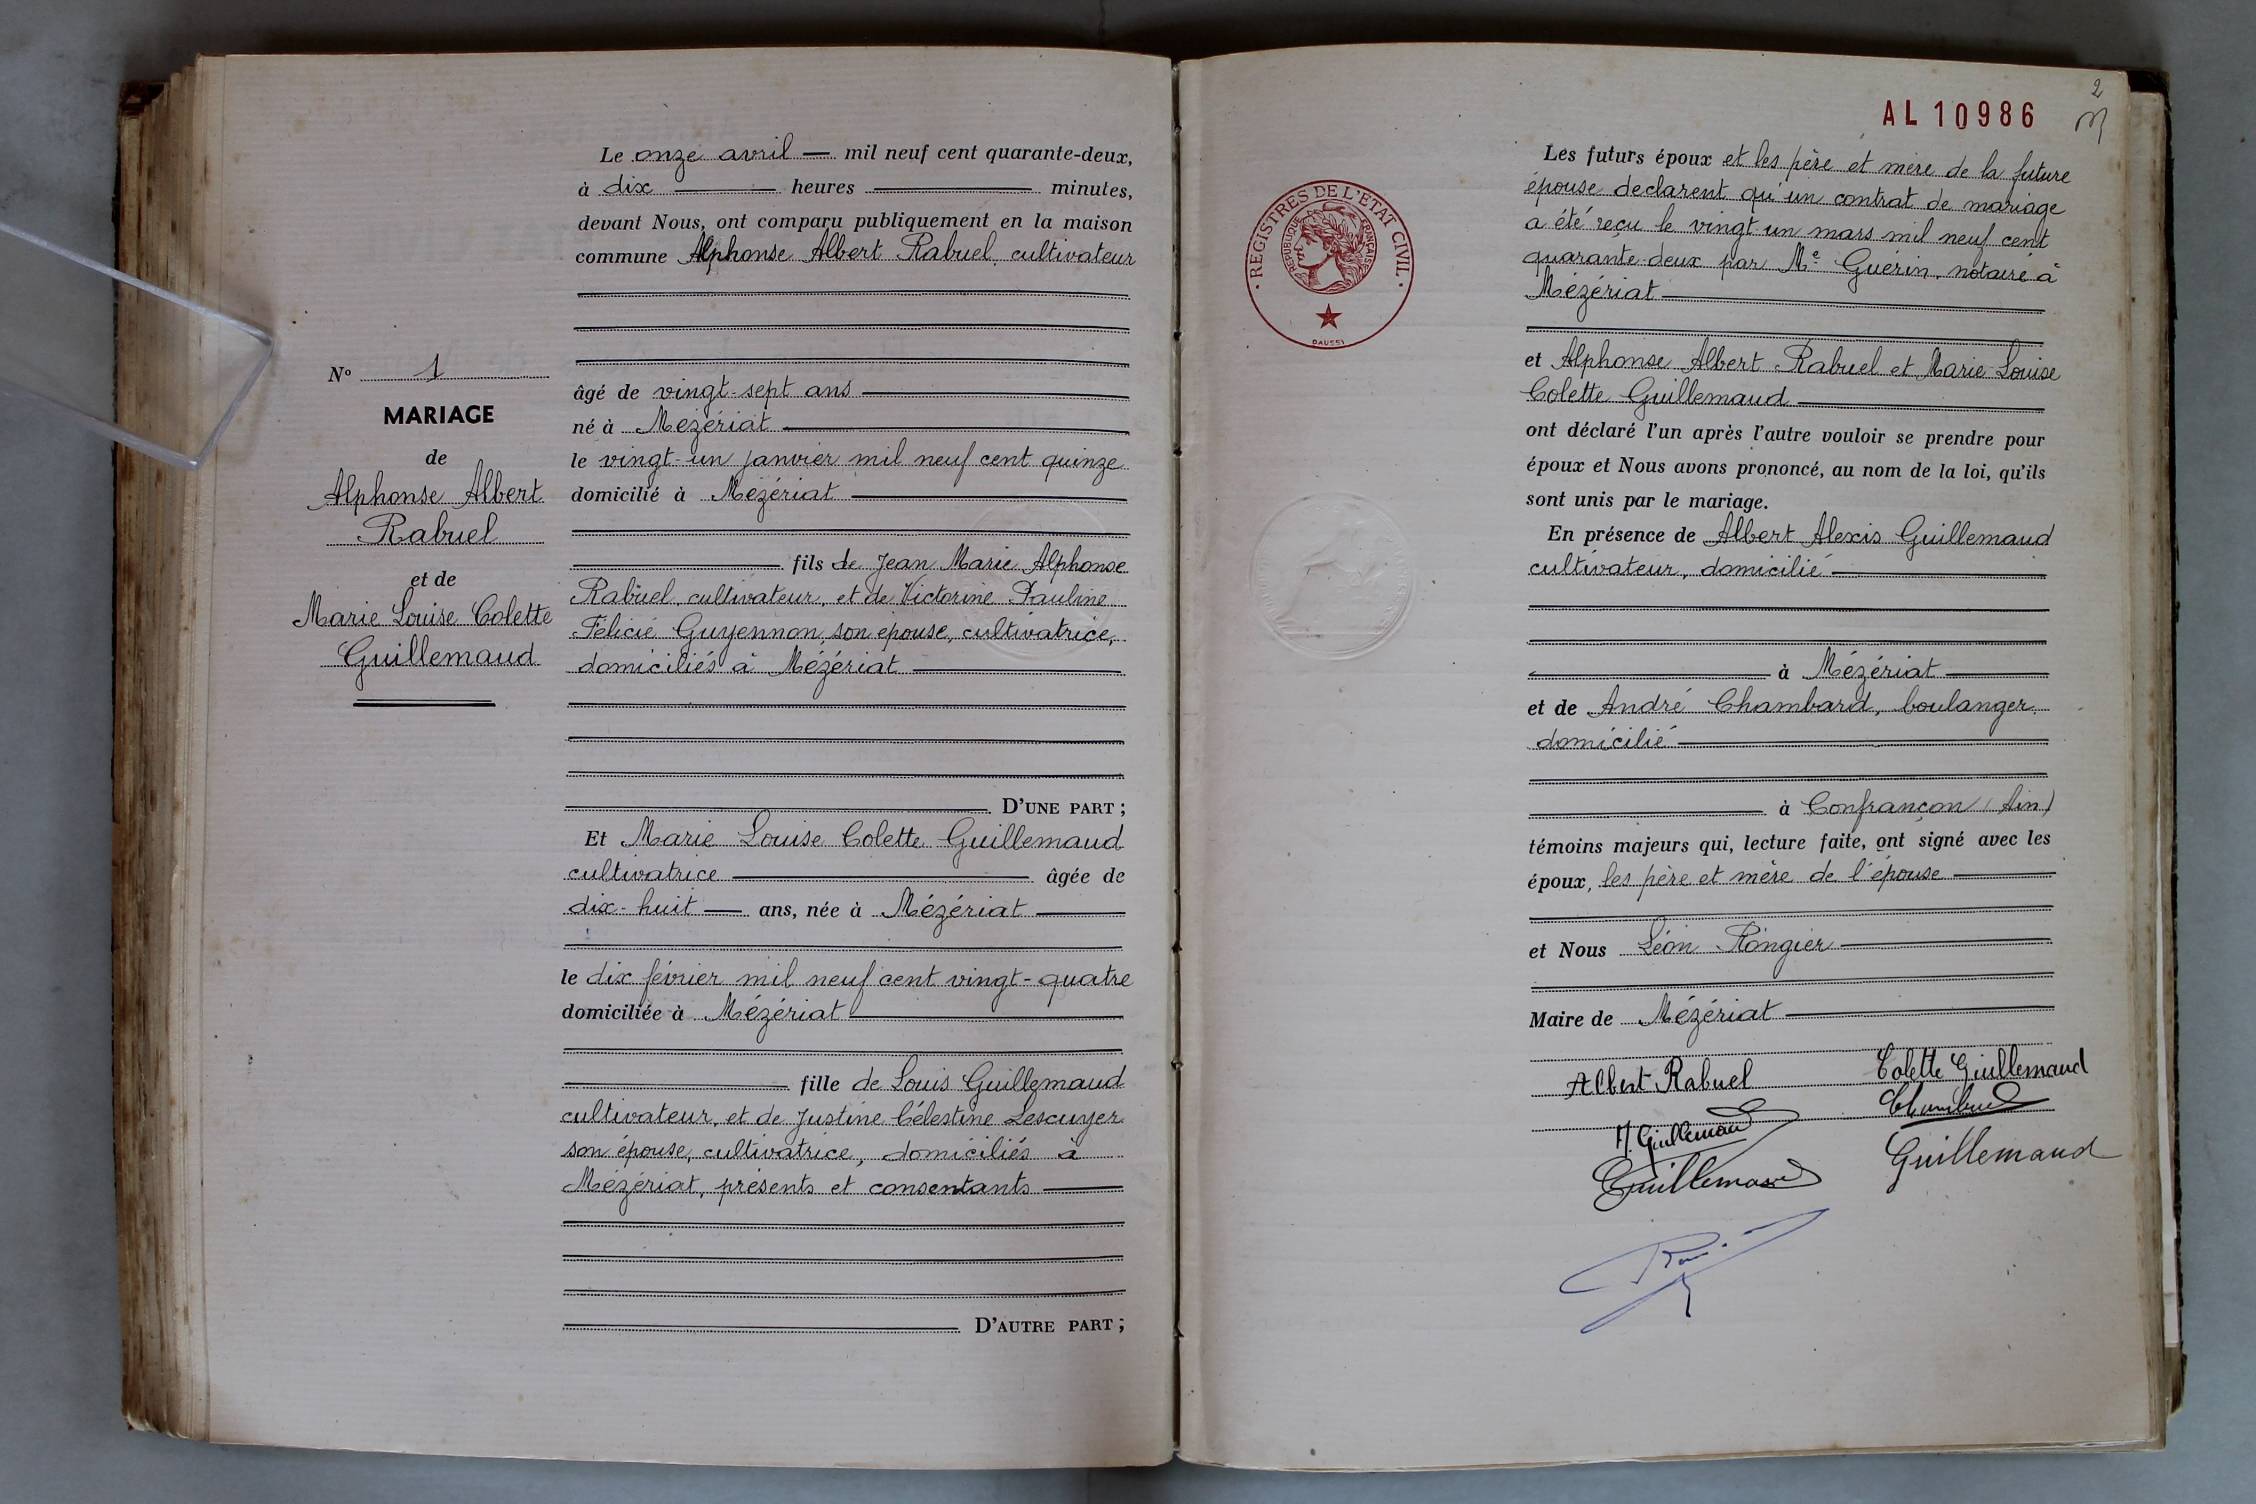 Le onze avril — mil neuf cent quarante-deux,
à dix heures minutes,
devant Nous, ont comparu publiquement en la maison
commune Alphonse Albert Rabuel, cultivateur
âgé de vingt-sept ans
né à Mézériat
le vingt-un janvier mil neuf cent quinze
domicilié à Mézériat
fils de Jean Marie Alphonse
Rabuel, cultivateur, et de Victorine Pauline
Félicie Guyennon, son épouse, cultivatrice,
domiciliés à Mézériat
D'UNE PART ;
Et Marie Louise Colette Guillemaud
cultivatrice âgée de
dix-huit ans, née à Mézériat
le dix février mil neuf cent vingt-quatre
domiciliée à Mézériat
fille de Louis Guillemaud
cultivateur, et de Justine Célestine Lescuyer
son épouse, cultivatrice, domiciliés à
Mézériat, présents et consentants
D'AUTRE PART ;
N° 1
MARIAGE
de
Alphonse Albert
Rabuel
et de
Marie Louise Colette
Guillemaud
2
AL 10986
REGISTRES DE L'ETAT CIVIL
REPUBLIQUE FRANÇAISE
DAUSSY
Les futurs époux et les père et mère de la future
épouse declarent qu'un contrat de mariage
a été reçu le vingt-un mars mil neuf cent
quarante-deux par Me Guérin, notaire à
Mézériat
et Alphonse Albert Rabuel et Marie Louise
Colette Guillemaud
ont déclaré l'un après l'autre vouloir se prendre pour
époux et Nous avons prononcé, au nom de la loi, qu'ils
sont unis par le mariage.
En présence de Albert Alexis Guillemaud
cultivateur, domicilié
à Mézériat
et de André Chambard, boulanger
domicilié
à Confrançon (Ain)
témoins majeurs qui, lecture faite, ont signé avec les
époux, les père et mère de l'épouse
et Nous Léon Rongier
Maire de Mézériat
Albert Rabuel Colette Guillemaud
A. Guillemaud Chambard
Guillemaud Guillemaud